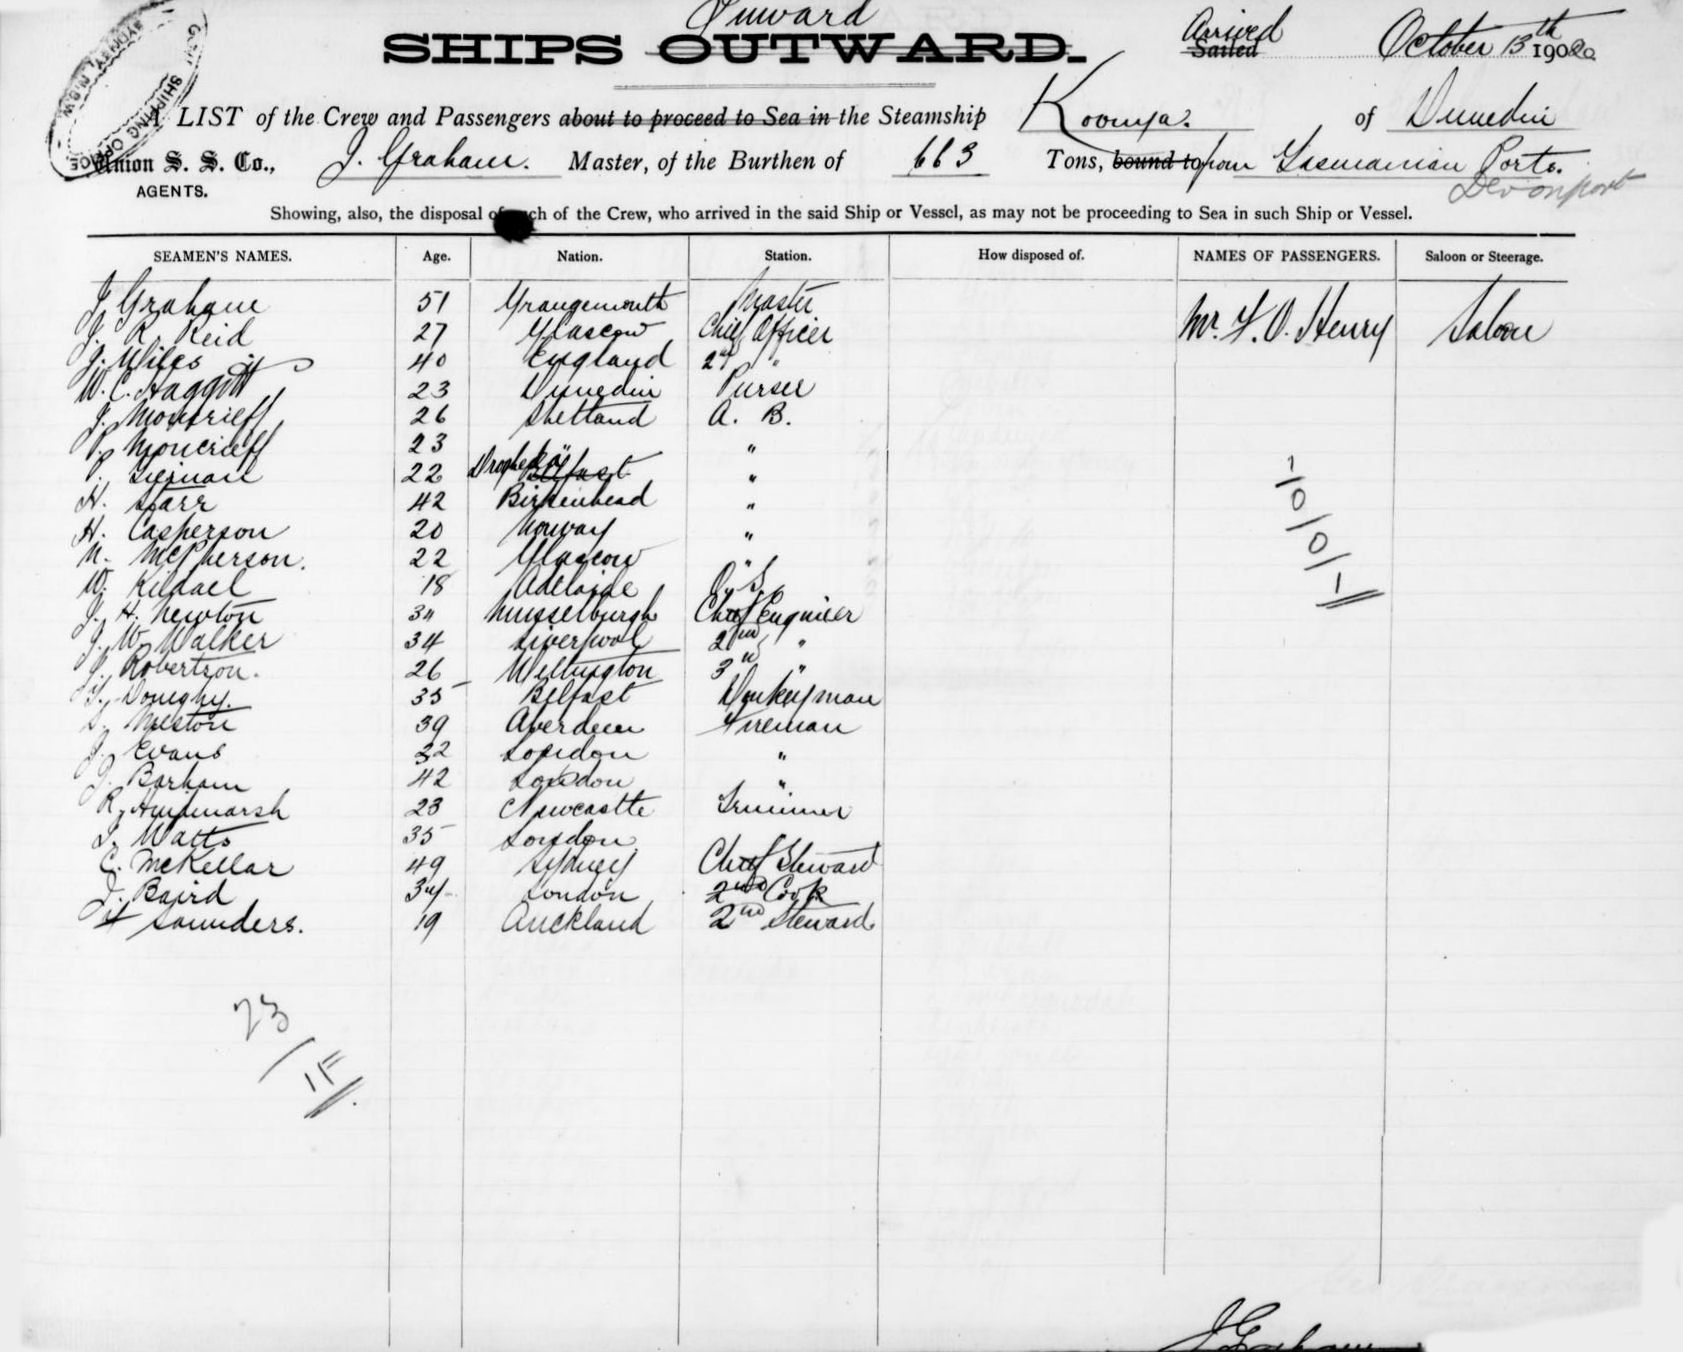 Inward
SHIPS OUTWARD.
Arrived
Sailed October 13th 1900
GOVT SHIPPING OFFICE SYDNEY N.S.W.
A LIST of the Crew and Passengers about to proceed to Sea in the Steamship Koonya. of Dunedin
Union S. S. Co., J. Graham. Master, of the Burthen of 663 Tons, bound to from Tasmanian Ports.
AGENTS. Devonport
Showing, also, the disposal of each of the Crew, who arrived in the said Ship or Vessel, as may not be proceeding to Sea in such Ship or Vessel.
SEAMEN'S NAMES. Age. Nation. Station. How disposed of. NAMES OF PASSENGERS. Saloon or Steerage.
J Graham 51 Grangemouth Master Mr. F. O. Henry Saloon
J. R. Reid 27 Glascow Chief Officer
J. Wiles 40 England 2nd "
W. C. Haggitt 23 Dunedin Purser
J. Moncrieff 26 Shetland A. B.
P. Moncrieff 23 " "
P. Tiernan 22 Drogheda Belfast "
H. Starr 42 Birkenhead "
H. Casperson 20 Norway "
N. McPherson. 22 Glascow "
W. Kildael 18 Adelaide O. S.
J. H. Newton 34 Musselburgh Chief Engineer
J. W. Walker 34 Liverpool 2nd "
J. Robertson. 26 Wellington 3rd "
Doneghy. 35 Belfast Donkeyman
Weston 39 Aberdeen Fireman
J. Evans 32 London "
J. Barham 42 London "
R. Hindmarsh 23 Newcastle Trimmer
J. Watts 35 London
C. McKellar 49 Sydney Chief Steward
J. Baird 34 London 2nd Cook
H Saunders. 19 Auckland 2nd Steward
1/0/0/1
23
1F
J Graham